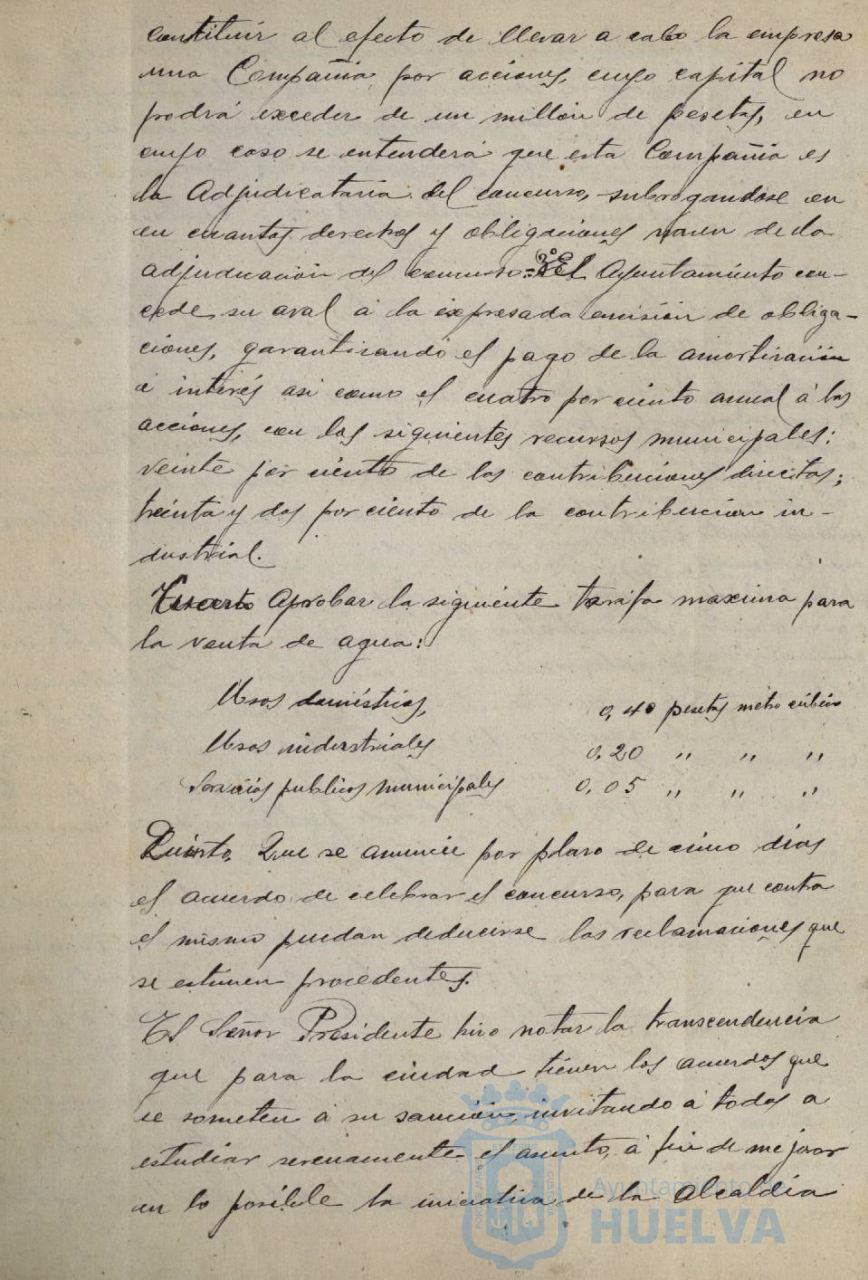 constituir al efecto de llevar a cabo la empresa
una Compañia por acciones, cuyo capital no
podrá exceder de un millón de pesetas, en
cuyo caso se entenderá que esta Compañia es
la Adjudicataria del concurso, subrogandose en
en cuantos derechos y obligaciones nacen de la
adjudicación del concurso = 3º El Ayuntamiento con-
cede su aval á la expresada emisión de obliga-
ciones, garantizando el pago de la amortización
é interés asi como el cuatro por ciento anual á las
acciones, con los siguientes recursos municipales:
veinte por ciento de las contribuciones directas;
treinta y dos por ciento de la contribución in-
dustrial.
Cuarto Aprobar la siguiente tarifa maxima para
la venta de agua:
Usos domésticos, 0,40 pesetas metro cúbico
Usos industriales 0,20 " " "
Servicios publicos municipales 0,05 " " "
Quinto, Que se anuncie por plazo de cinco dias
el acuerdo de celebrar el concurso, para que contra
el mismo puedan deducirse las reclamaciones que
se estimen procedentes.
El Señor Presidente hizo notar la transcendencia
que para la ciudad tienen los acuerdos que
se someten á su sanción, invitando á todos a
estudiar serenamente el asunto, á fin de mejorar
en lo posible la iniciativa de la Alcaldía
Ayuntamiento de
HUELVA